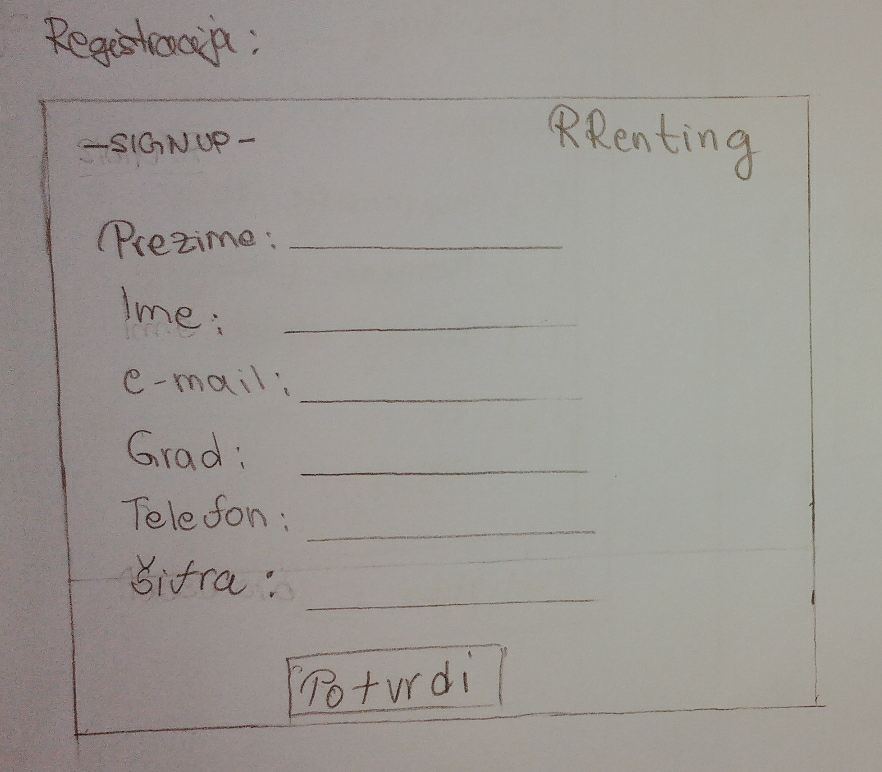 Registracija:
-SIGNUP- RRenting
Prezime:
Ime:
e-mail:
Grad:
Telefon:
Šifra:
Potvrdi